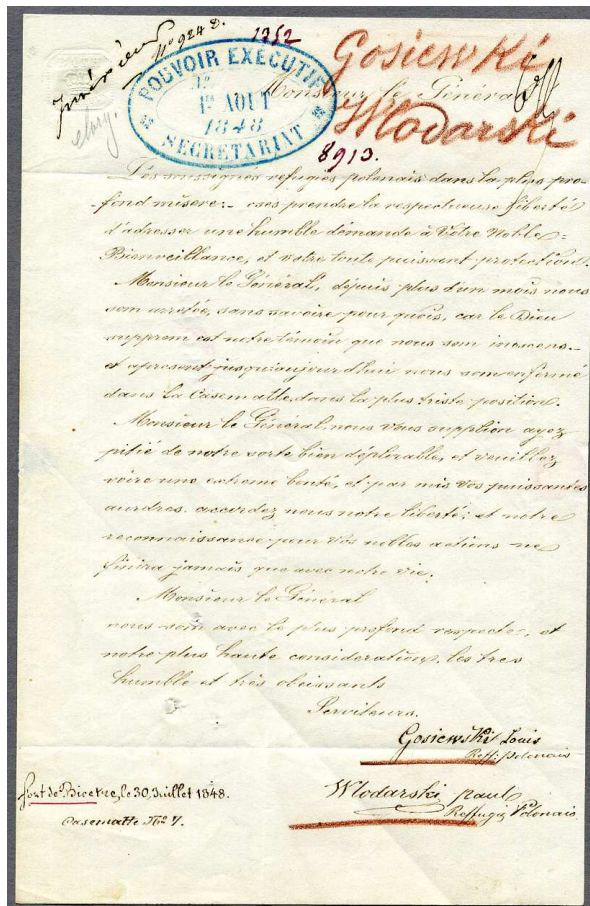 No 924 D.
1352
Gosiewski
POUVOIR EXÉCUTIF
No
1er AOUT
1848
SECRÉTARIAT
Monsieur le Général
Wlodarski
8913.
Les soussignés refugiés polonais dans la plus pro-
-fond misere:- oses prendre la respectueuse liberté
d'adresser une humble démande à Vôtre Noble=
Bienveillance, et votre toute puissent protection.
Monsieur le Général, dépuis plus d'un mois nous
som arretée, sans savoire pour quois, car le Dieu
supprem est notre témoin que nous som inoscens.-
et apresent jusqu'aujourd'hui nous som enfermé
dans la Casematte, dans la plus triste position.
Monsieur le Général, nous vous supplion ayez
pitié de notre sorte bien déplorable, et veuillez
voire une extreme bonté, et par mis vos puissantes
aurdres accordez nous notre liberté; et notre
reconnaissance pour Vos nobles actions ne
finira jamais que avec notre vie.
Monsieur le Général
nous som avec le plus profond respecte, et
notre plus haute consideration, les tres
humble et trés obeissants
Serviteurs.
Gosiewski Louis
Reffu: polonais
fort de Bicetre, le 30 Juillet 1848.
Casematte No 7.
Wlodarski paul
Reffugié Polonais